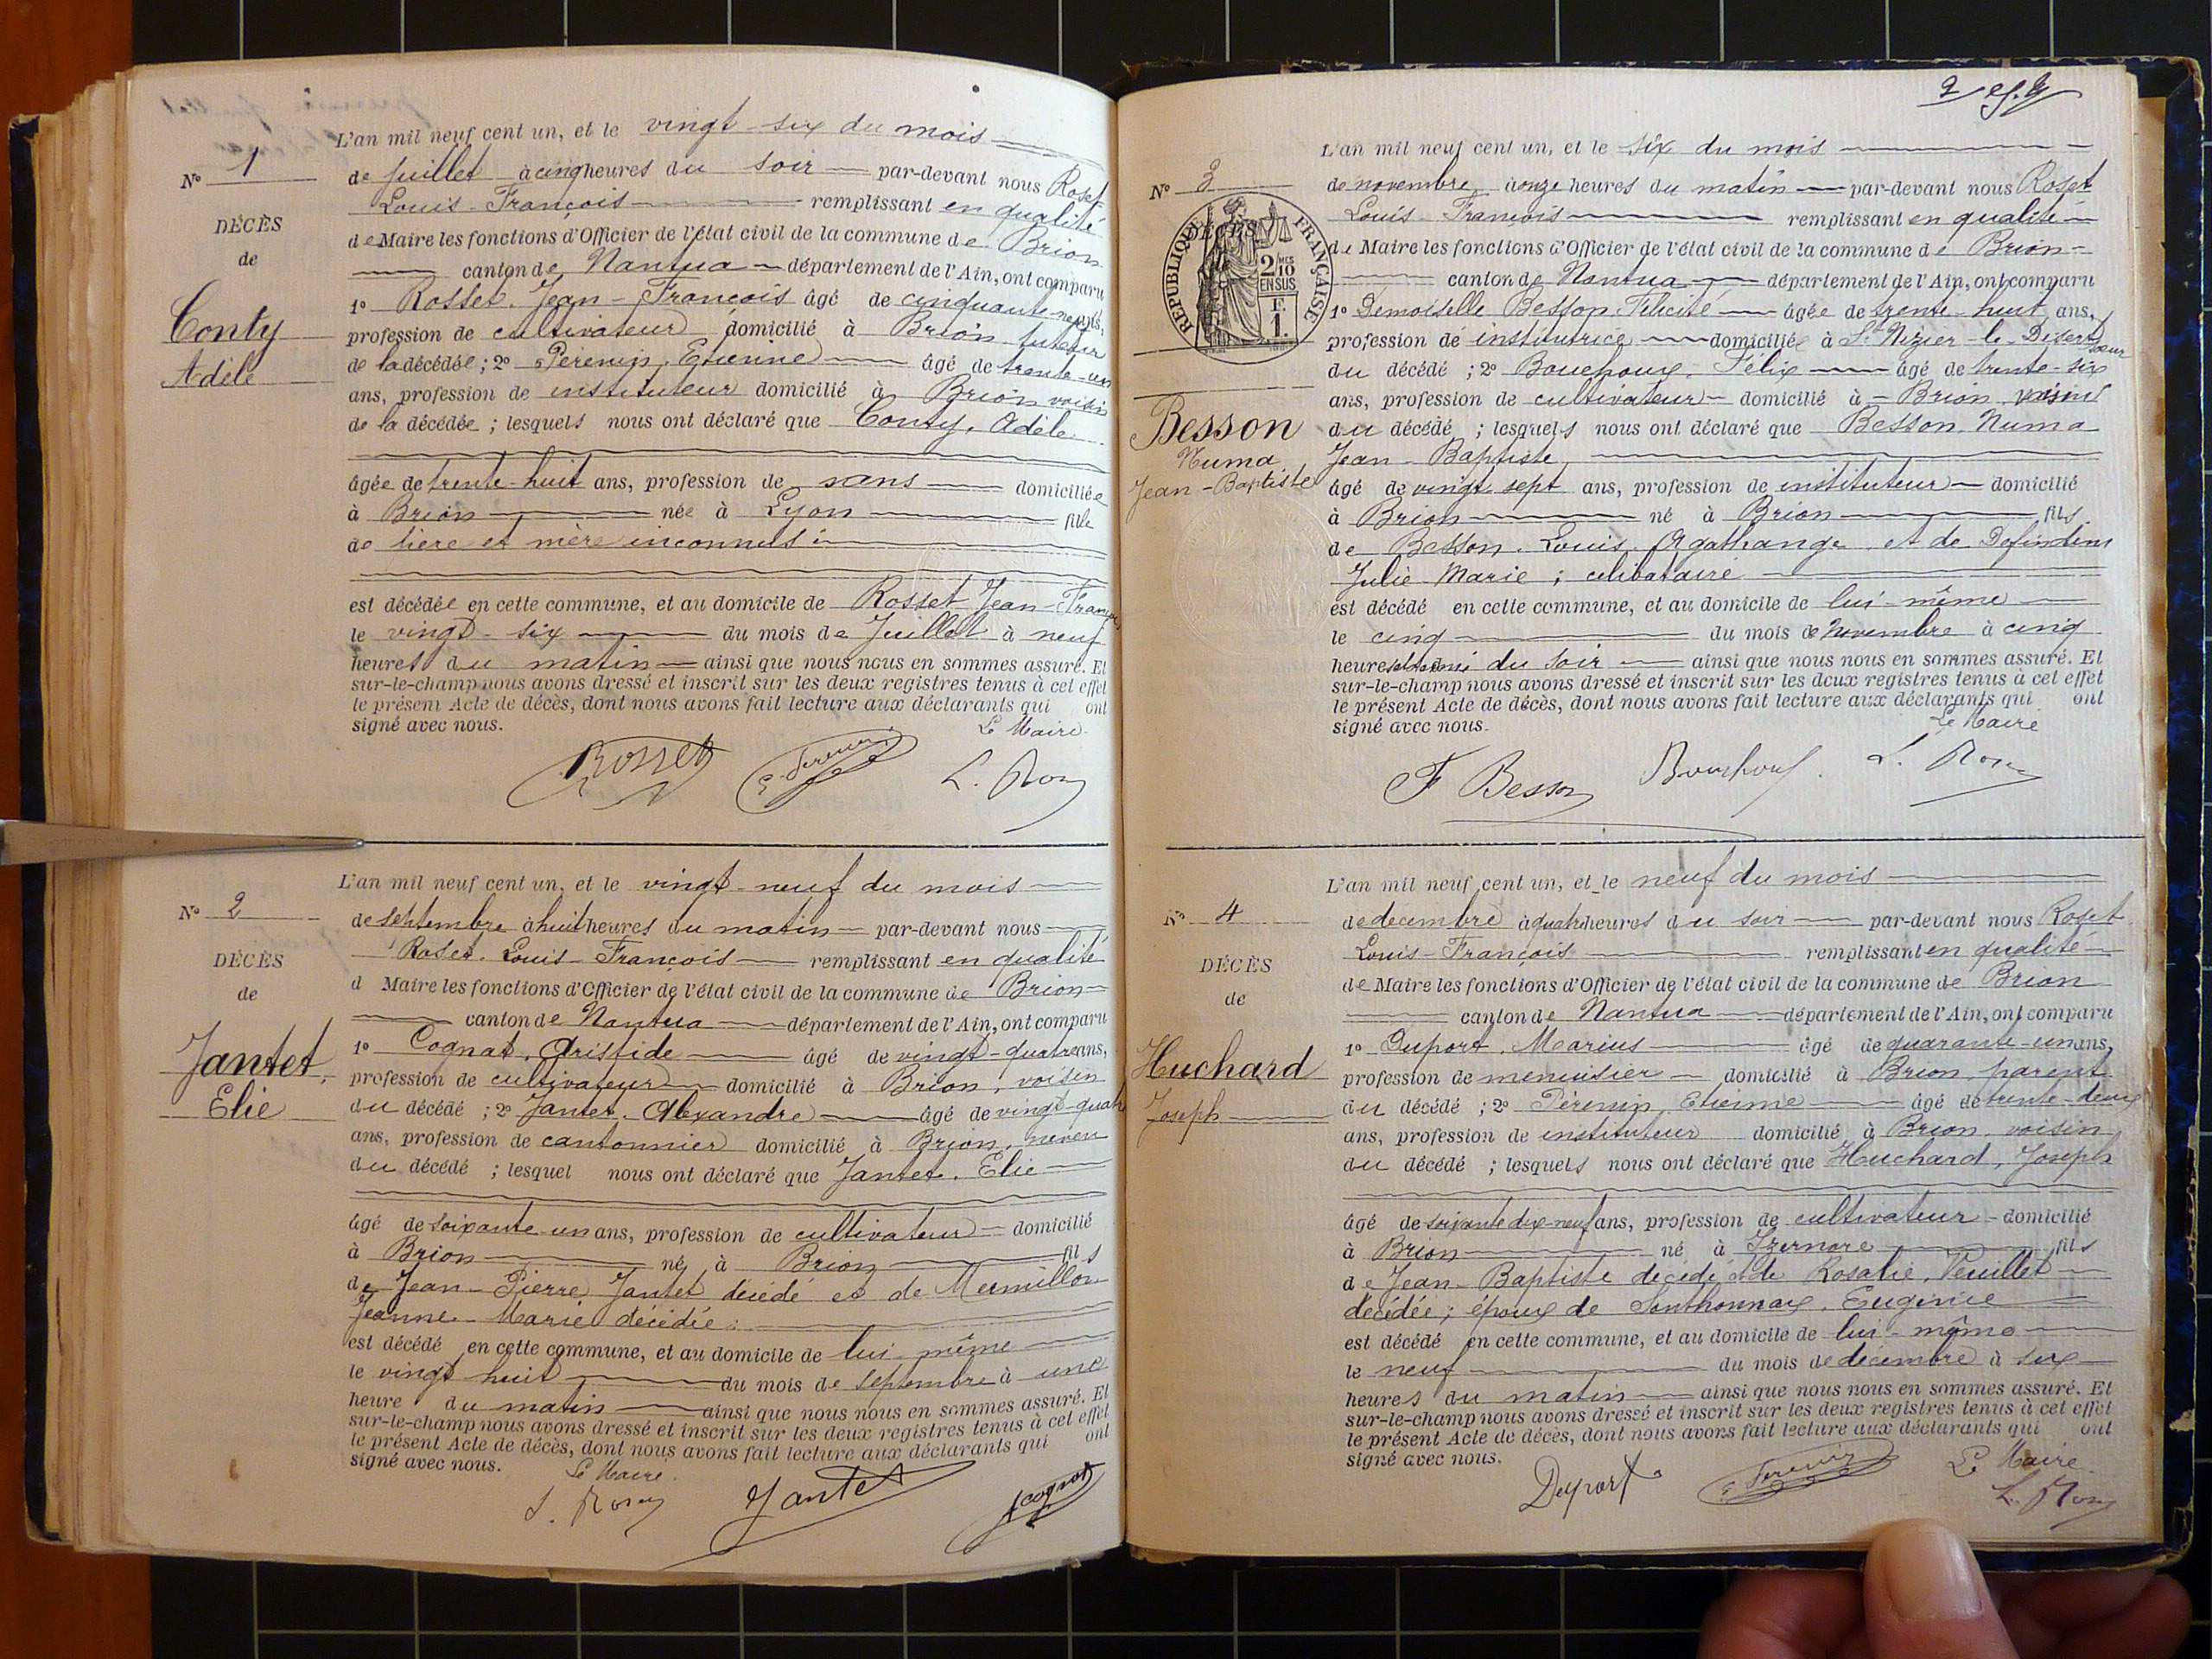 N° 1
DÉCÈS
de
Conty
Adèle
L'an mil neuf cent un, et le vingt-six du mois
de juillet à cinq heures du soir par-devant nous Roset
Louis-François remplissant en qualité
de Maire les fonctions d'Officier de l'état civil de la commune de Brion
canton de Nantua département de l'Ain, ont comparu
1° Rosset Jean-François âgé de cinquante-neuf ans,
profession de cultivateur domicilié à Brion tuteur
de la décédée ; 2° Pérenin, Etienne âgé de trente-un
ans, profession de instituteur domicilié à Brion voisin
de la décédée ; lesquels nous ont déclaré que Conty, Adèle
âgée de trente-huit ans, profession de sans domiciliée
à Brion née à Lyon fille
de père et mère inconnus
est décédée en cette commune, et au domicile de Rosset Jean-François
le vingt-six du mois de Juillet à neuf
heures du matin ainsi que nous nous en sommes assuré. Et
sur-le-champ nous avons dressé et inscrit sur les deux registres tenus à cet effet
le présent Acte de décès, dont nous avons fait lecture aux déclarants qui ont
signé avec nous. Le Maire
Rosset E. Perenin L. Roset
N° 2
DÉCÈS
de
Jantet,
Elie
L'an mil neuf cent un, et le vingt-neuf du mois
de septembre à huit heures du matin par-devant nous
Roset. Louis-François remplissant en qualité
d Maire les fonctions d'Officier de l'état civil de la commune de Brion
canton de Nantua département de l'Ain, ont comparu
1° Cognat, Aristide âgé de vingt-quatre ans,
profession de cultivateur domicilié à Brion, voisin
du décédé ; 2° Jantet. Alexandre âgé de vingt-quatre
ans, profession de cantonnier domicilié à Brion, neveu
du décédé ; lesquel nous ont déclaré que Jantet. Elie
âgé de soixante-un ans, profession de cultivateur domicilié
à Brion né à Brion fils
de Jean-Pierre Jantet décédé et de Mermillon
Jeanne-Marie décédée
est décédé en cette commune, et au domicile de lui-même
le vingt huit du mois de septembre à une
heure du matin ainsi que nous nous en sommes assuré. Et
sur-le-champ nous avons dressé et inscrit sur les deux registres tenus à cet effet
le présent Acte de décès, dont nous avons fait lecture aux déclarants qui ont
signé avec nous. Le Maire.
L. Roset Jantet Cognat
N° 3
DÉCÈS
RÉPUBLIQUE FRANÇAISE
2/10
EN SUS
F.
1.
Besson
Numa
Jean-Baptiste
L'an mil neuf cent un, et le six du mois
de novembre à onze heures du matin par-devant nous Roset
Louis-François remplissant en qualité
de Maire les fonctions d'Officier de l'état civil de la commune de Brion
canton de Nantua département de l'Ain, ont comparu
1° Demoiselle Besson Félicité âgée de trente-huit ans,
profession de institutrice domiciliée à St Nizier-le-Désert soeur
du décédé ; 2° Bouchoux, Félix âgé de trente-six
ans, profession de cultivateur domicilié à Brion voisin
du décédé ; lesquels nous ont déclaré que Besson, Numa
Jean-Baptiste
âgé de vingt sept ans, profession de instituteur domicilié
à Brion né à Brion fils
de Besson. Louis. Agathange et de
Julie-Marie ; célibataire
est décédé en cette commune, et au domicile de lui-même
le cinq du mois de novembre à cinq
heures et demi du soir ainsi que nous nous en sommes assuré. Et
sur-le-champ nous avons dressé et inscrit sur les deux registres tenus à cet effet
le présent Acte de décès, dont nous avons fait lecture aux déclarants qui ont
signé avec nous. Le Maire
F Besson Bouchoux. L. Roset
N° 4
DÉCÈS
de
Huchard
Joseph
L'an mil neuf cent un, et le neuf du mois
de décembre à quatre heures du soir par-devant nous Roset
Louis-François remplissant en qualité
de Maire les fonctions d'Officier de l'état civil de la commune de Brion
canton de Nantua département de l'Ain, ont comparu
1° Duport, Marius âgé de quarante-un ans,
profession de menuisier domicilié à Brion, parent
du décédé ; 2° Pérenin, Etienne âgé de trente-deux
ans, profession de instituteur domicilié à Brion, voisin
du décédé ; lesquels nous ont déclaré que Huchard, Joseph
âgé de soixante dix-neuf ans, profession de cultivateur domicilié
à Brion né à Izernore fils
de Jean-Baptiste décédé et de Rosalie, Veuillet
décédée ; époux de Sonthonnax, Eugénie
est décédé en cette commune, et au domicile de lui-même
le neuf du mois de décembre à six
heures du matin ainsi que nous nous en sommes assuré. Et
sur-le-champ nous avons dressé et inscrit sur les deux registres tenus à cet effet
le présent Acte de décès, dont nous avons fait lecture aux déclarants qui ont
signé avec nous. Le Maire
Duport E. Perenin L. Roset